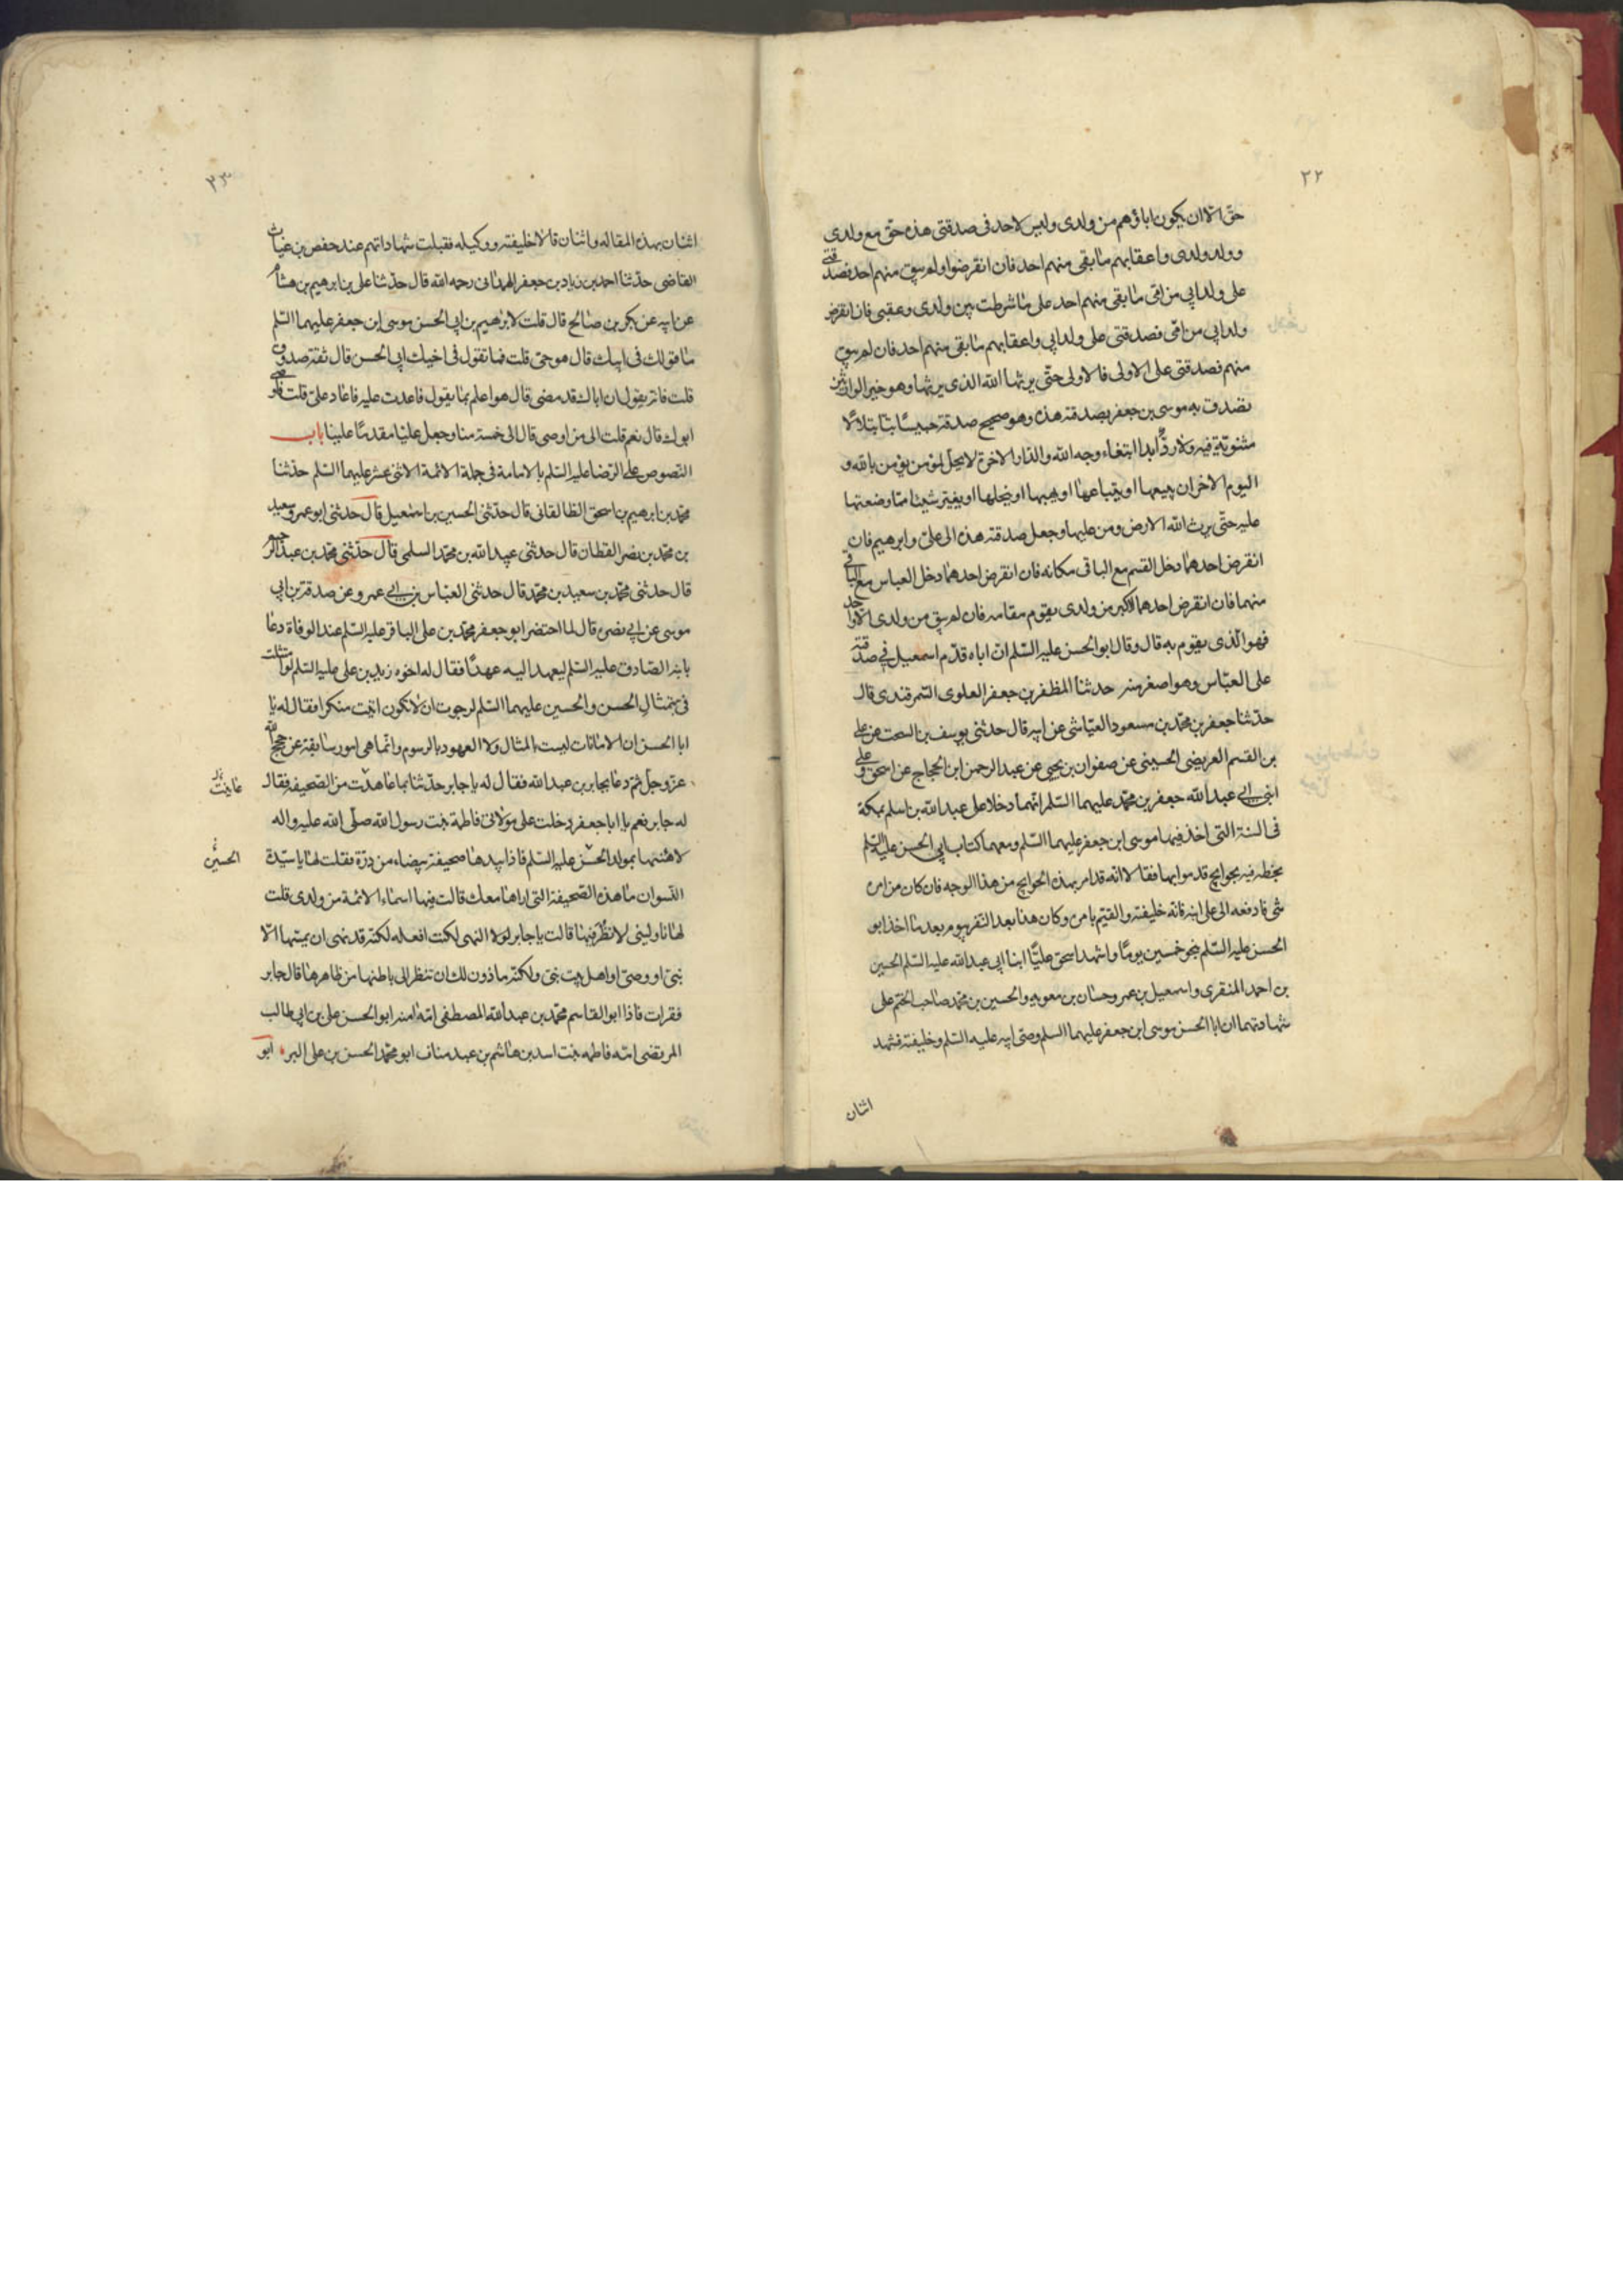 ٢٢
حق الا ان يكون اباؤهم من ولدى وليس لاحد فى صدقتى هذه حق مع ولدى
وولد ولدى واعقابهم ما بقى منهم احد فان انقرضوا ولم يبق منهم احد فصدقتى
على ولد ابى من امى ما بقى منهم احد على ما شرطت بين ولدى وعقبى فان انقرض
ولد ابى من امى فصدقتى على ولد ابى واعقابهم ما بقى منهم احد فان لم يبق
منهم فصدقتى على الاولى فالاولى حتى يرثها الله الذى يرثها وهو خير الوارثين
تصدق به موسى بن جعفر بصدقته هذه وهو صحيح صدقة حبيسًا بتا بتلا لا
مثنوية فيه ولا ردّ ابدا ابتغاء وجه الله والدار الاخرة لا يحل لمؤمن يؤمن بالله و
اليوم الاخر ان يبيعها او يبتاعها او يهبها او ينحلها او يغير شيئا مما وضعتها
عليه حتى يرث الله الارض ومن عليها وجعل صدقته هذه الى على وابرهيم فان
انقرض احدهما دخل القسم مع الباقى مكانه فان انقرض احدهما دخل العباس مع الباقى
منهما فان انقرض احدهما الاكبر من ولدى يقوم مقامه فان لم يبق من ولدى الا واحد
فهو الذى يقوم به قال وقال ابو الحسن عليه السلم ان اباه قدّم اسمعيل فى صدقته
على العباس وهو اصغر منه حدثنا المظفر بن جعفر العلوى السمرقندى قال
حدثنا جعفر بن محمد بن مسعود العياشى عن ابيه قال حدثنى يوسف بن السخت عن على
بن القسم العريضى الحسينى عن صفوان بن يحيى عن عبد الرحمن ابن الحجاج عن اسحق وعلى
ابنى ابى عبد الله جعفر بن محمد عليهما السلم انهما دخلا على عبد الله بن اسلم بمكة
فى السنة التى اخذ فيها موسى ابن جعفر عليهما السلم ومعهما كتاب ابى الحسن عليه السلم
بخطه فيه بحوايج قد موابها فقالا انه قد امر بهذه الحوايج من هذا الوجه فان كان من امره
شى فادفعه الى على ابنه فانه خليفته والقيم بامره وكان هذا بعد النفر بيوم بعد ما اخذ ابو
الحسن عليه السلم بنحو خمسين يومًا واشهد اسحق عليًا ابنا ابى عبد الله عليه السلم الحسين
بن احمد المنقرى واسمعيل بن عمر وحسان بن معويه والحسين بن محمد صاحب الختم على
شهادتهما ان ابا الحسن موسى ابن جعفر عليهما السلم وصى ابيه عليه السلم وخليفته فشهد
اثنان
٢٣
اثنان بهذه المقاله واثنان قالا خليفته ووكيله فقبلت شهاداتهم عند حفص بن غياث
القاضى حدثنا احمد بن زياد بن جعفر الهمدانى رحمه الله قال حدثنا على بن ابرهيم بن هشام
عن ابيه عن بكر بن صالح قال قلت لابرهيم بن ابى الحسن موسى ابن جعفر عليهما السلم
ما قولك فى ابيك قال هو حى قلت فما تقول فى اخيك ابى الحسن قال ثقة صدوق
قلت فانه يقول ان اباك قد مضى قال هو اعلم بما يقول فاعدت عليه فاعاد على قلت فاوصى
ابوك قال نعم قلت الى من اوصى قال الى خمسة منا وجعل عليّا مقدمًا علينا باب
النصوص على الرضا عليه السلم بالامامة فى جملة الائمة الاثنى عشر عليهما السلم حدثنا
محمد بن ابرهيم بن اسحق الطالقانى قال حدثنى الحسين بن اسمعيل قال حدثنى ابو عمرو سعيد
بن محمد بن نصر القطان قال حدثنى عبيد الله بن محمد السلمى قال حدثنى محمد بن عبد الرحيم
قال حدثنى محمد بن سعيد بن محمد قال حدثنى العباس بن ابى عمرو عن صدقة بن ابى
موسى عن ابى نضرة قال لما احتضر ابو جعفر محمد بن على الباقر عليه السلم عند الوفاة دعا
بابنه الصادق عليه السلم ليعهد اليه عهدًا فقال له اخوه زيد بن على عليه السلم لو امتثلت
فى بتمثال الحسن والحسين عليهما السلم لرجوت ان لا تكون اتيت منكرا فقال له يا
ابا الحسن ان الامانات ليست بالمثال ولا العهود بالرسوم وانما هى امور سابقة عن حجج الله
عز وجل ثم دعا بجابر بن عبد الله فقال له يا جابر حدثنا بما عاهدت من الصحيفة فقال
عاينت
له جابر نعم يا ابا جعفر دخلت على مولاتى فاطمة بنت رسول الله صلى الله عليه واله
لاهنئها بمولد الحسن عليه السلم فاذا بيدها صحيفة بيضاء من درّة فقلت لها يا سيدة
الحسين
النسوان ما هذه الصحيفة التى اراها معك قالت فيها اسماء الائمة من ولدى قلت
لها ناولينى لانظر فيها قالت يا جابر لولا النهى لكنت افعله لكنه قد نهى ان يمسها الا
نبى او وصى او اهل بيت نبى ولكنه ماذون لك ان تنظر الى باطنها من ظاهرها قال جابر
فقرات فاذا ابو القاسم محمد بن عبد الله المصطفى امه امنه ابو الحسن على بن ابى طالب
المرتضى امه فاطمه بنت اسد بن هاشم بن عبد مناف ابو محمد الحسن بن على البر ابو